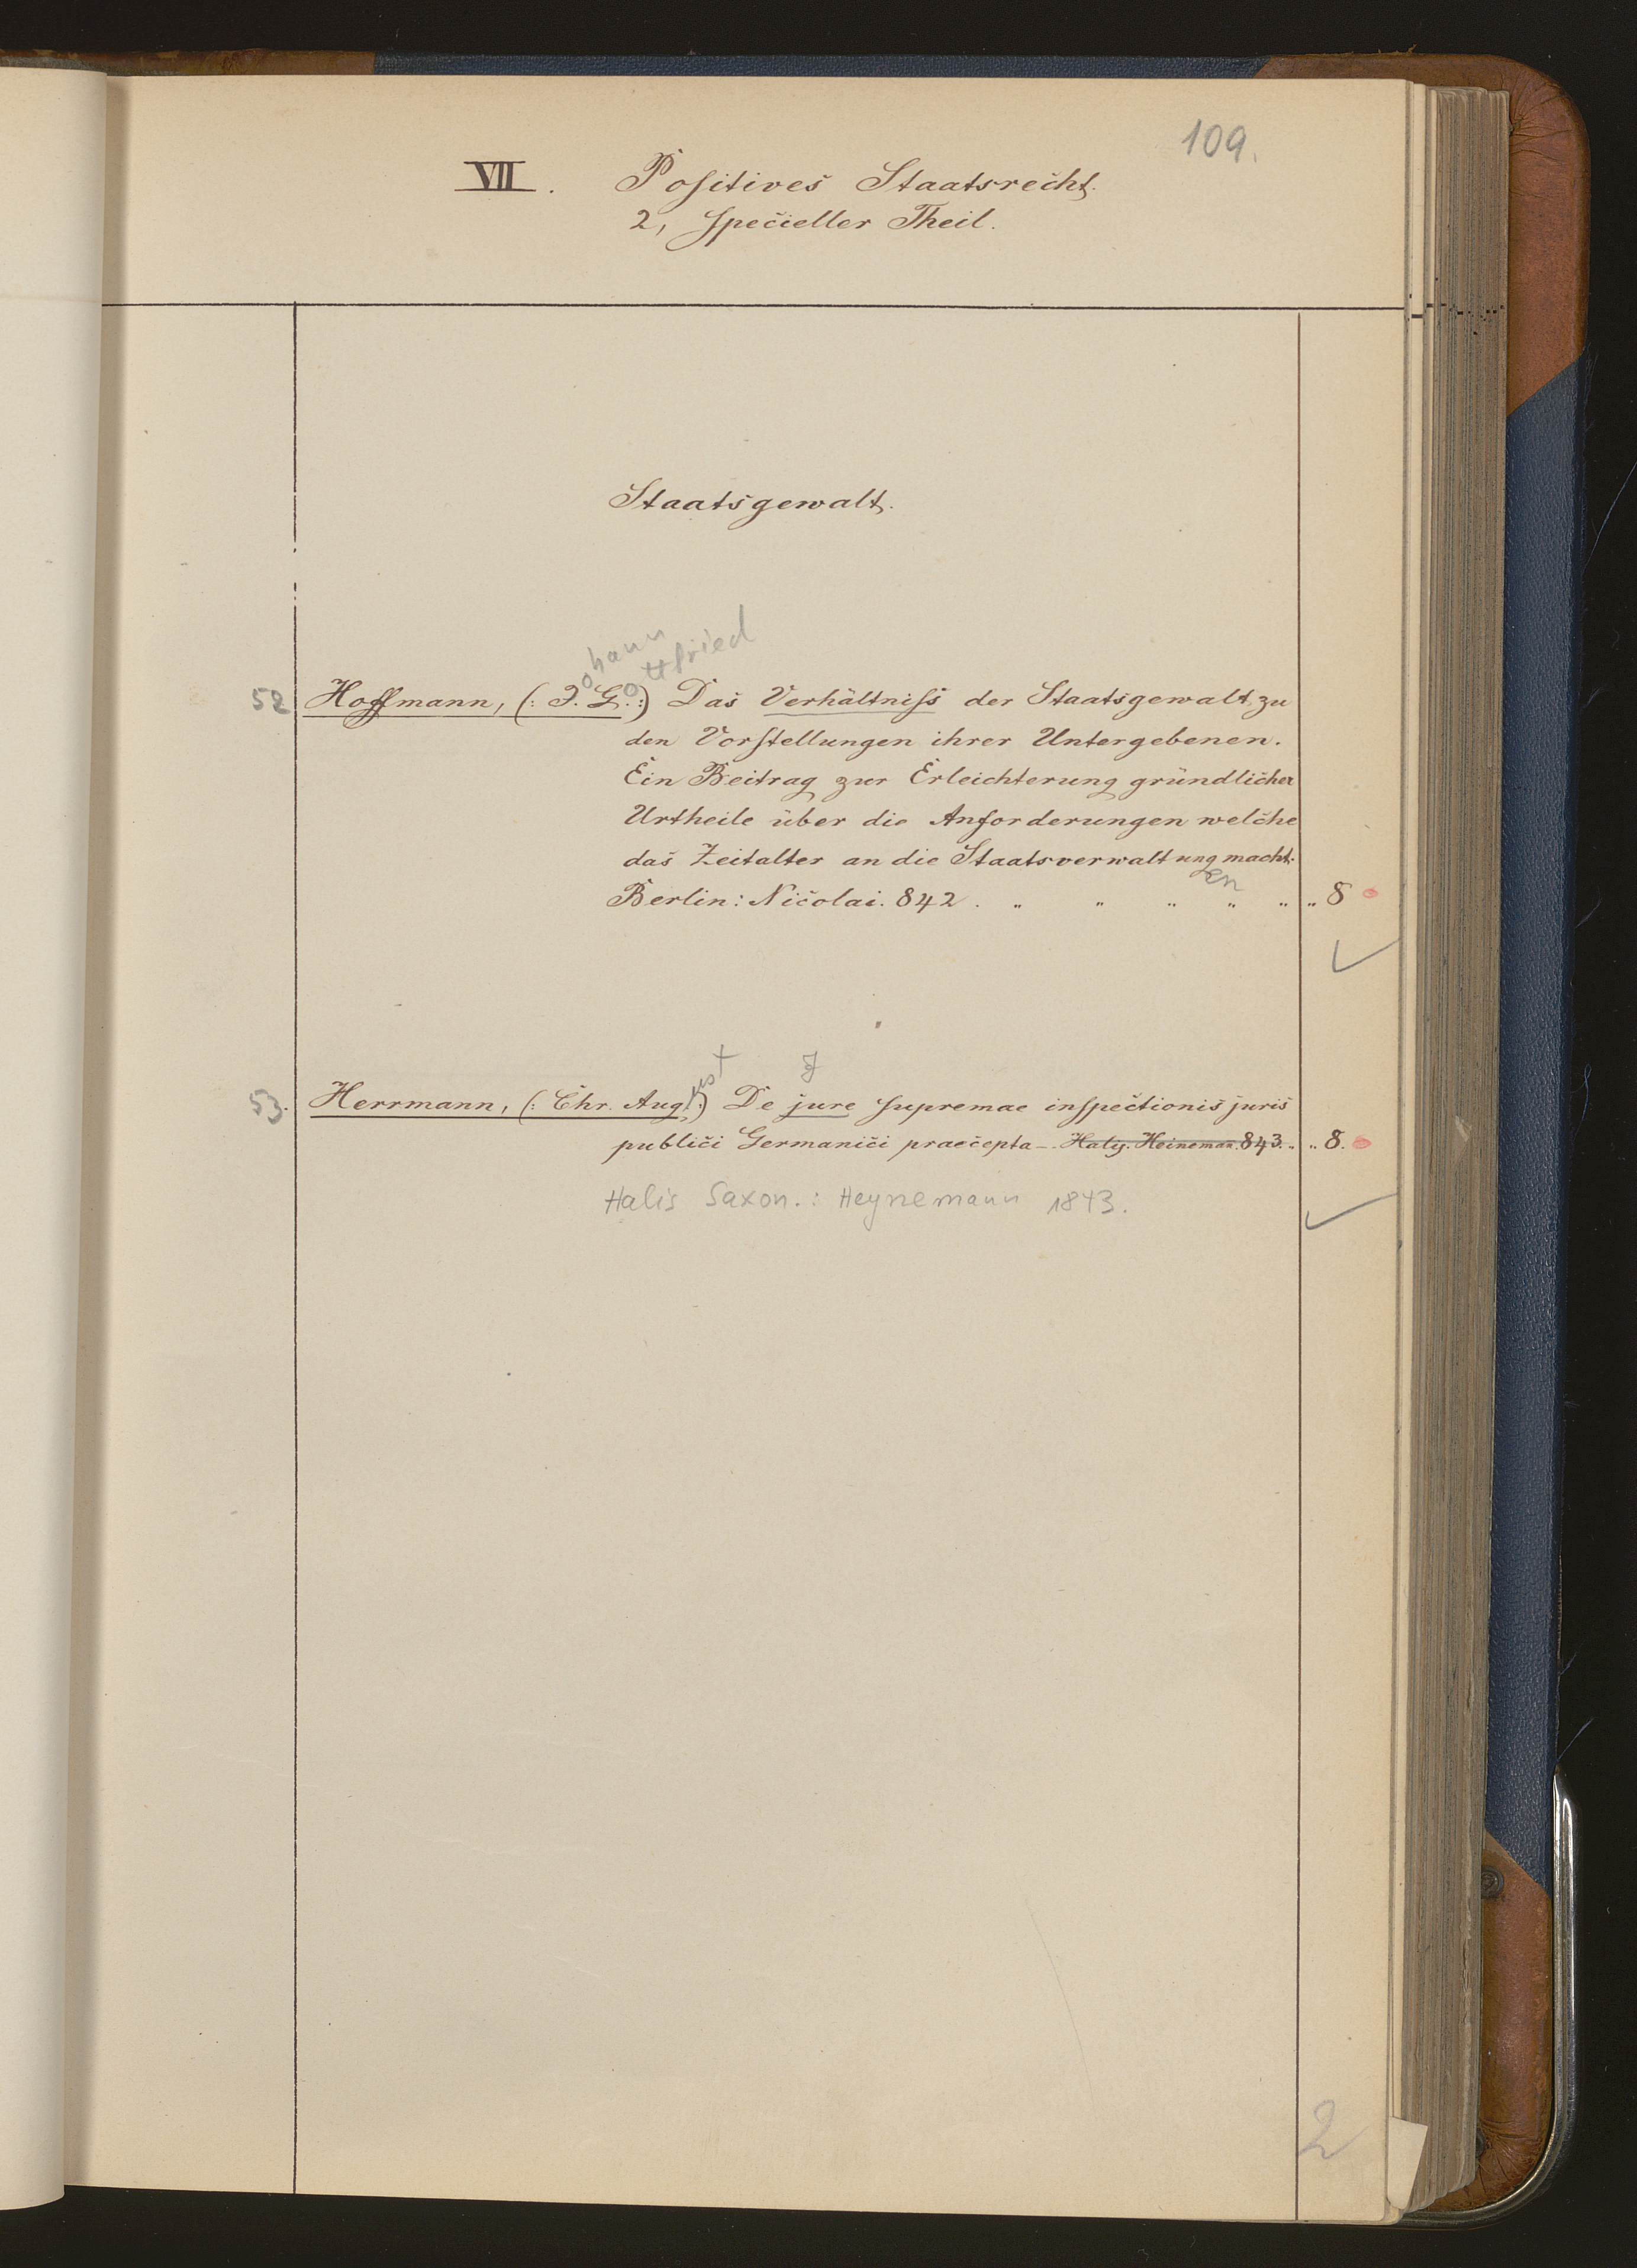 109.
VII. Poſitives Staatsrecht.
2, ſpecieller Theil.
Staatsgewalt.
ohann ottfried
52 Hoffmann, (: J. G. :) Das Verhältniſs der Staatsgewalt zu
den Vorſtellungen ihrer Untergebenen.
Ein Beitrag zur Erleichterung gründlicher
Urtheile über die Anforderungen welche
das Zeitalter an die Staatsverwaltung macht.
en
Berlin: Nicolai. 842. " " " " " " 8
ust J
53. Herrmann, (: Chr. Aug. :) De jure ſupremae inſpectionis juris
publici Germanici praecepta – Haly. Heineman. 843. " " 8.
Halis Saxon.: Heynemann 1843.
2